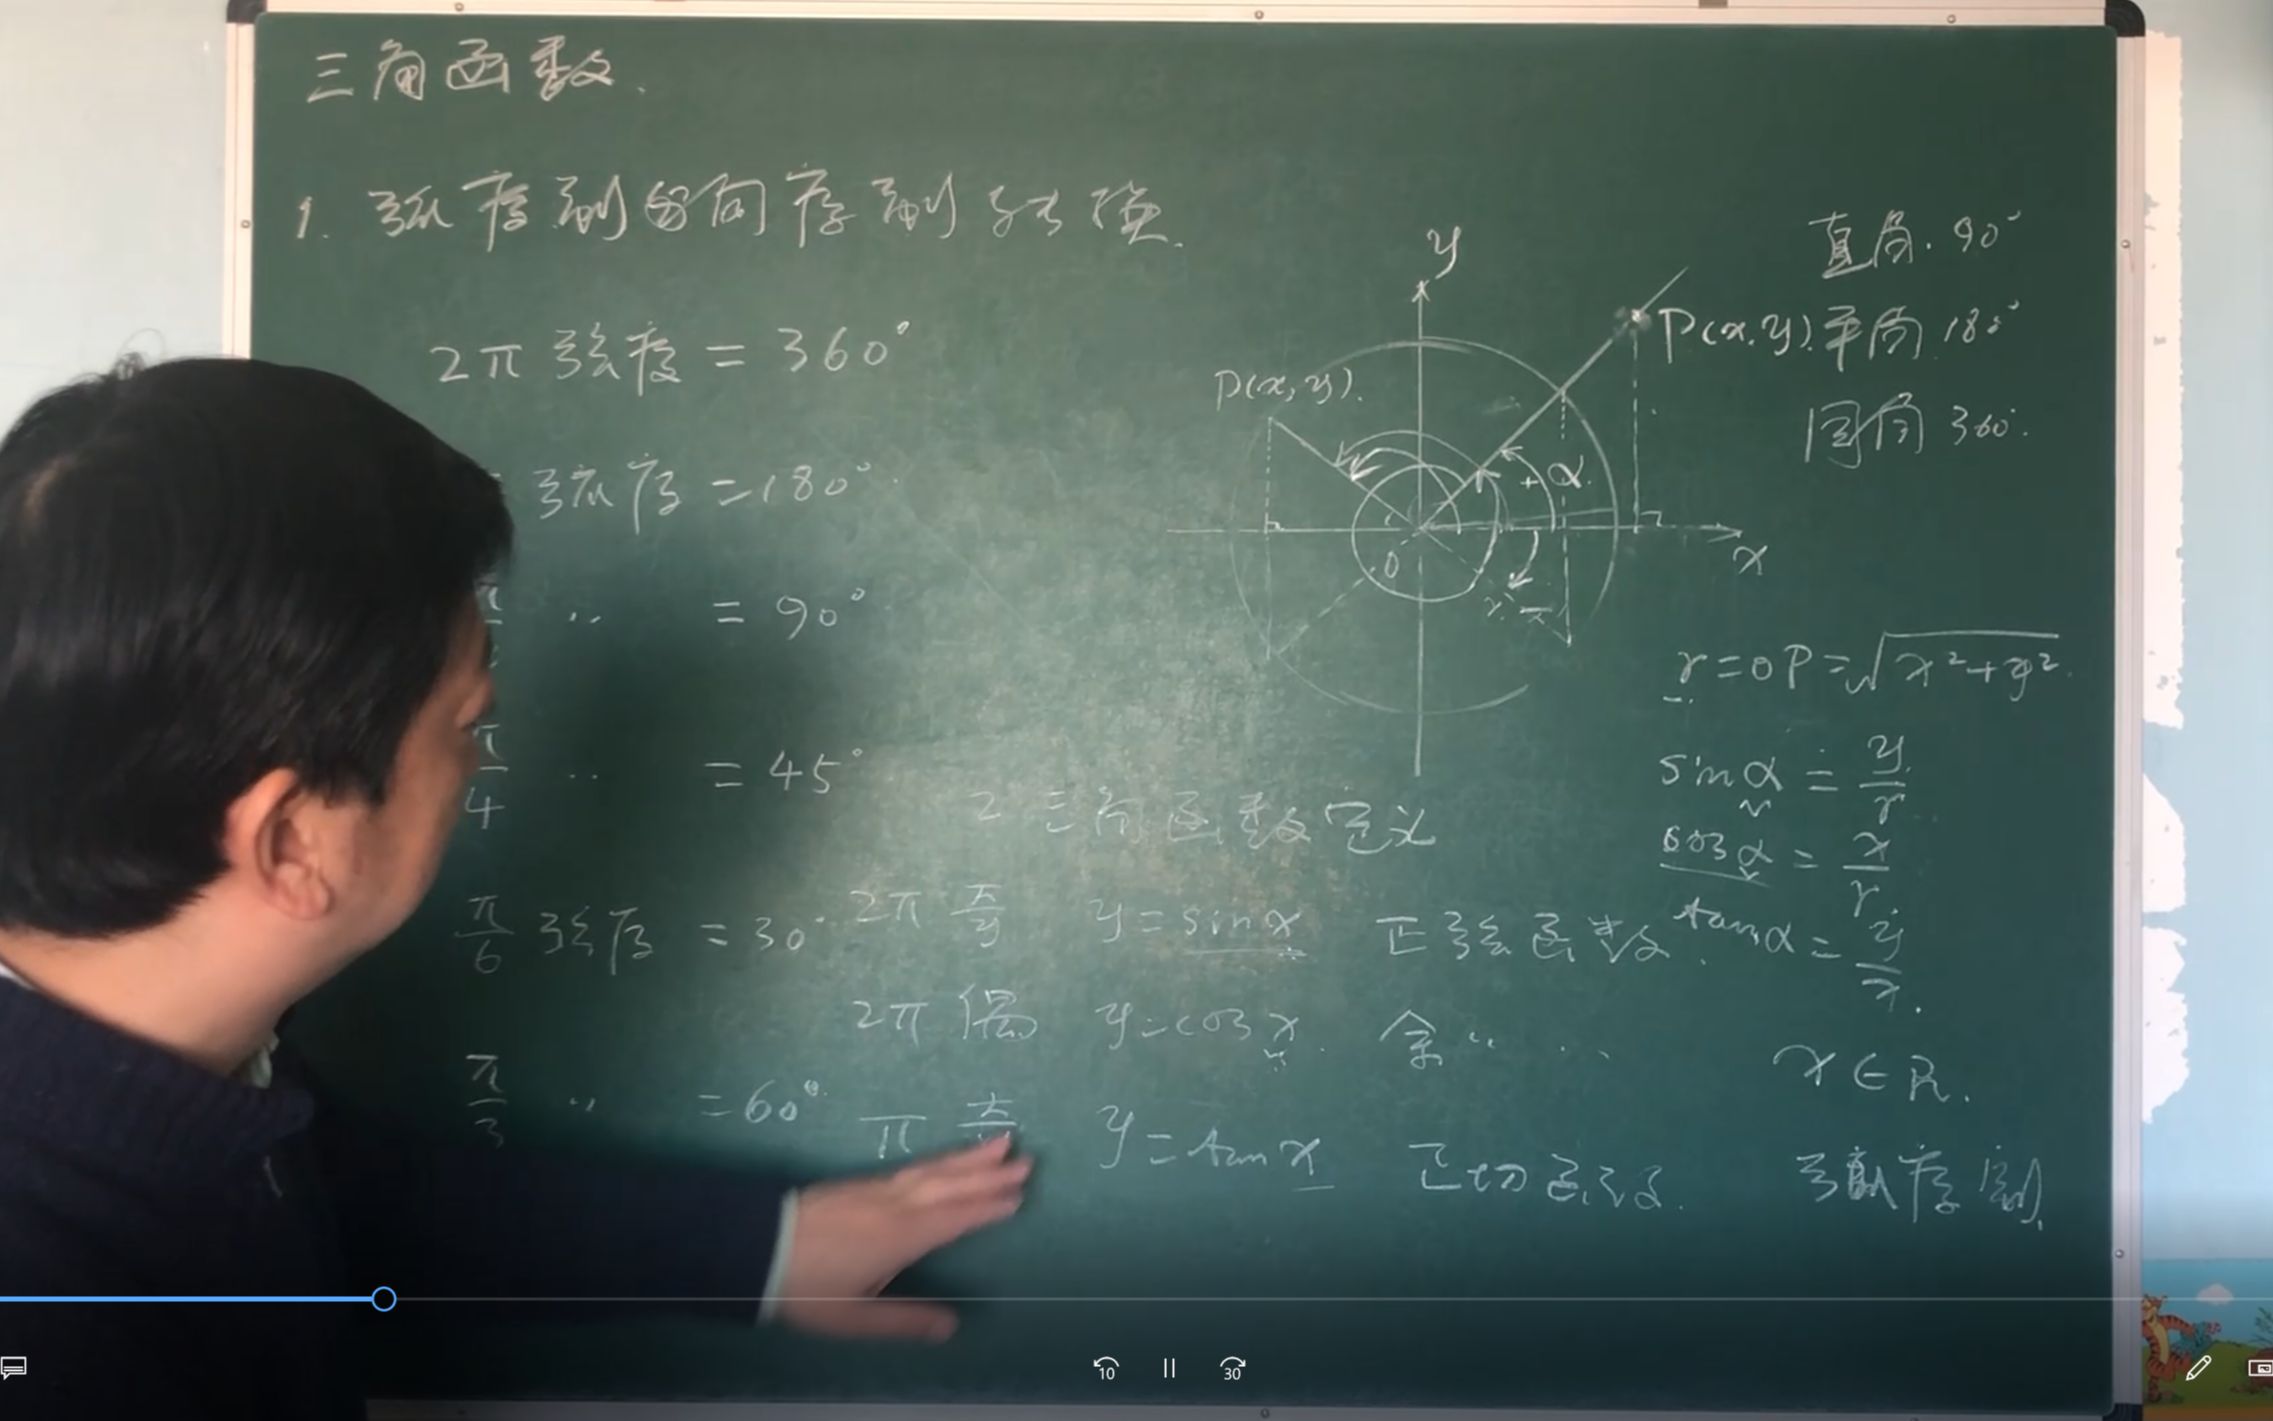 三角函数.
1. 弧度制与角度制转换.
2π 弧度 = 360°
弧度 = 180°
π = 90°
π/4 ·· = 45°
π/6 弧度 = 30°
π/3 ·· = 60°
y
x
O
P(x,y).
P(x.y).
+ α.
r
-
直角. 90°
平角 180°
周角 360°.
r = OP = √x²+y².
sinα = y/r
cosα = x/r
tanα = y/x.
2 三角函数定义
2π 奇 y = sinx 正弦函数.
2π 偶 y = cosx. 余 ·· ··
π 奇 y = tanx 正切函数.
x ∈ R.
弧度制.
10
30